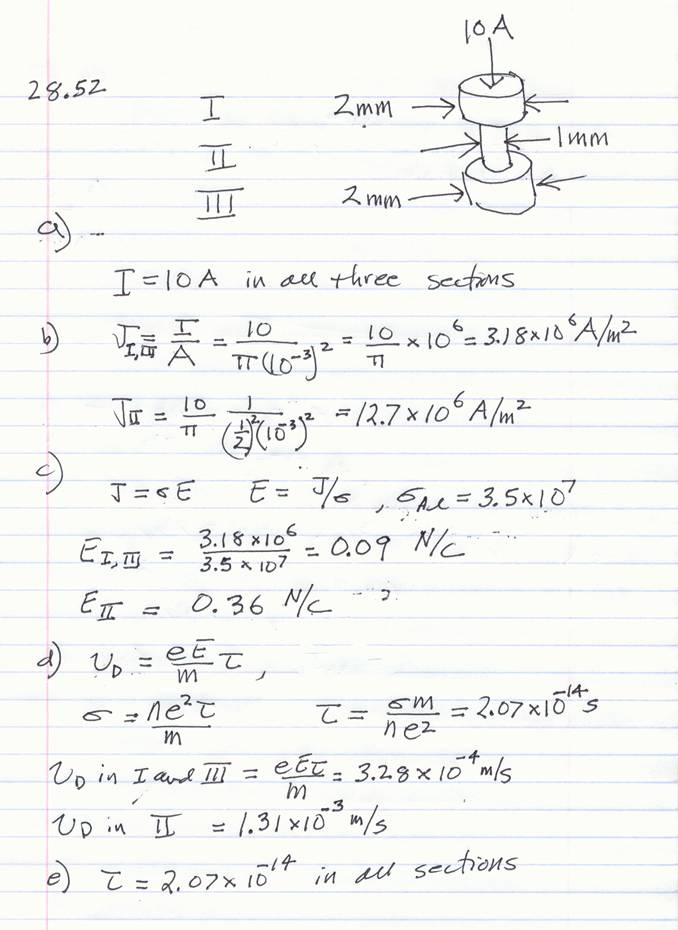 10 A
28.52
I 2mm
II 1mm
III 2mm
a) --
I = 10 A in all three sections
b) J_I,III = I/A = 10/π(10⁻³)² = 10/π × 10⁶ = 3.18×10⁶ A/m²
J_II = 10/π 1/(1/2)²(10⁻³)² = 12.7×10⁶ A/m²
c)
J = σE E = J/σ , σ_Al = 3.5×10⁷
E_I,III = 3.18×10⁶/3.5×10⁷ = 0.09 N/C
E_II = 0.36 N/C
d) υ_D = eE/m τ,
σ = ne²τ/m τ = σm/ne² = 2.07×10⁻¹⁴ s
υ_D in I and III = eEτ/m = 3.28×10⁻⁴ m/s
υ_D in II = 1.31×10⁻³ m/s
e) τ = 2.07×10⁻¹⁴ in all sections